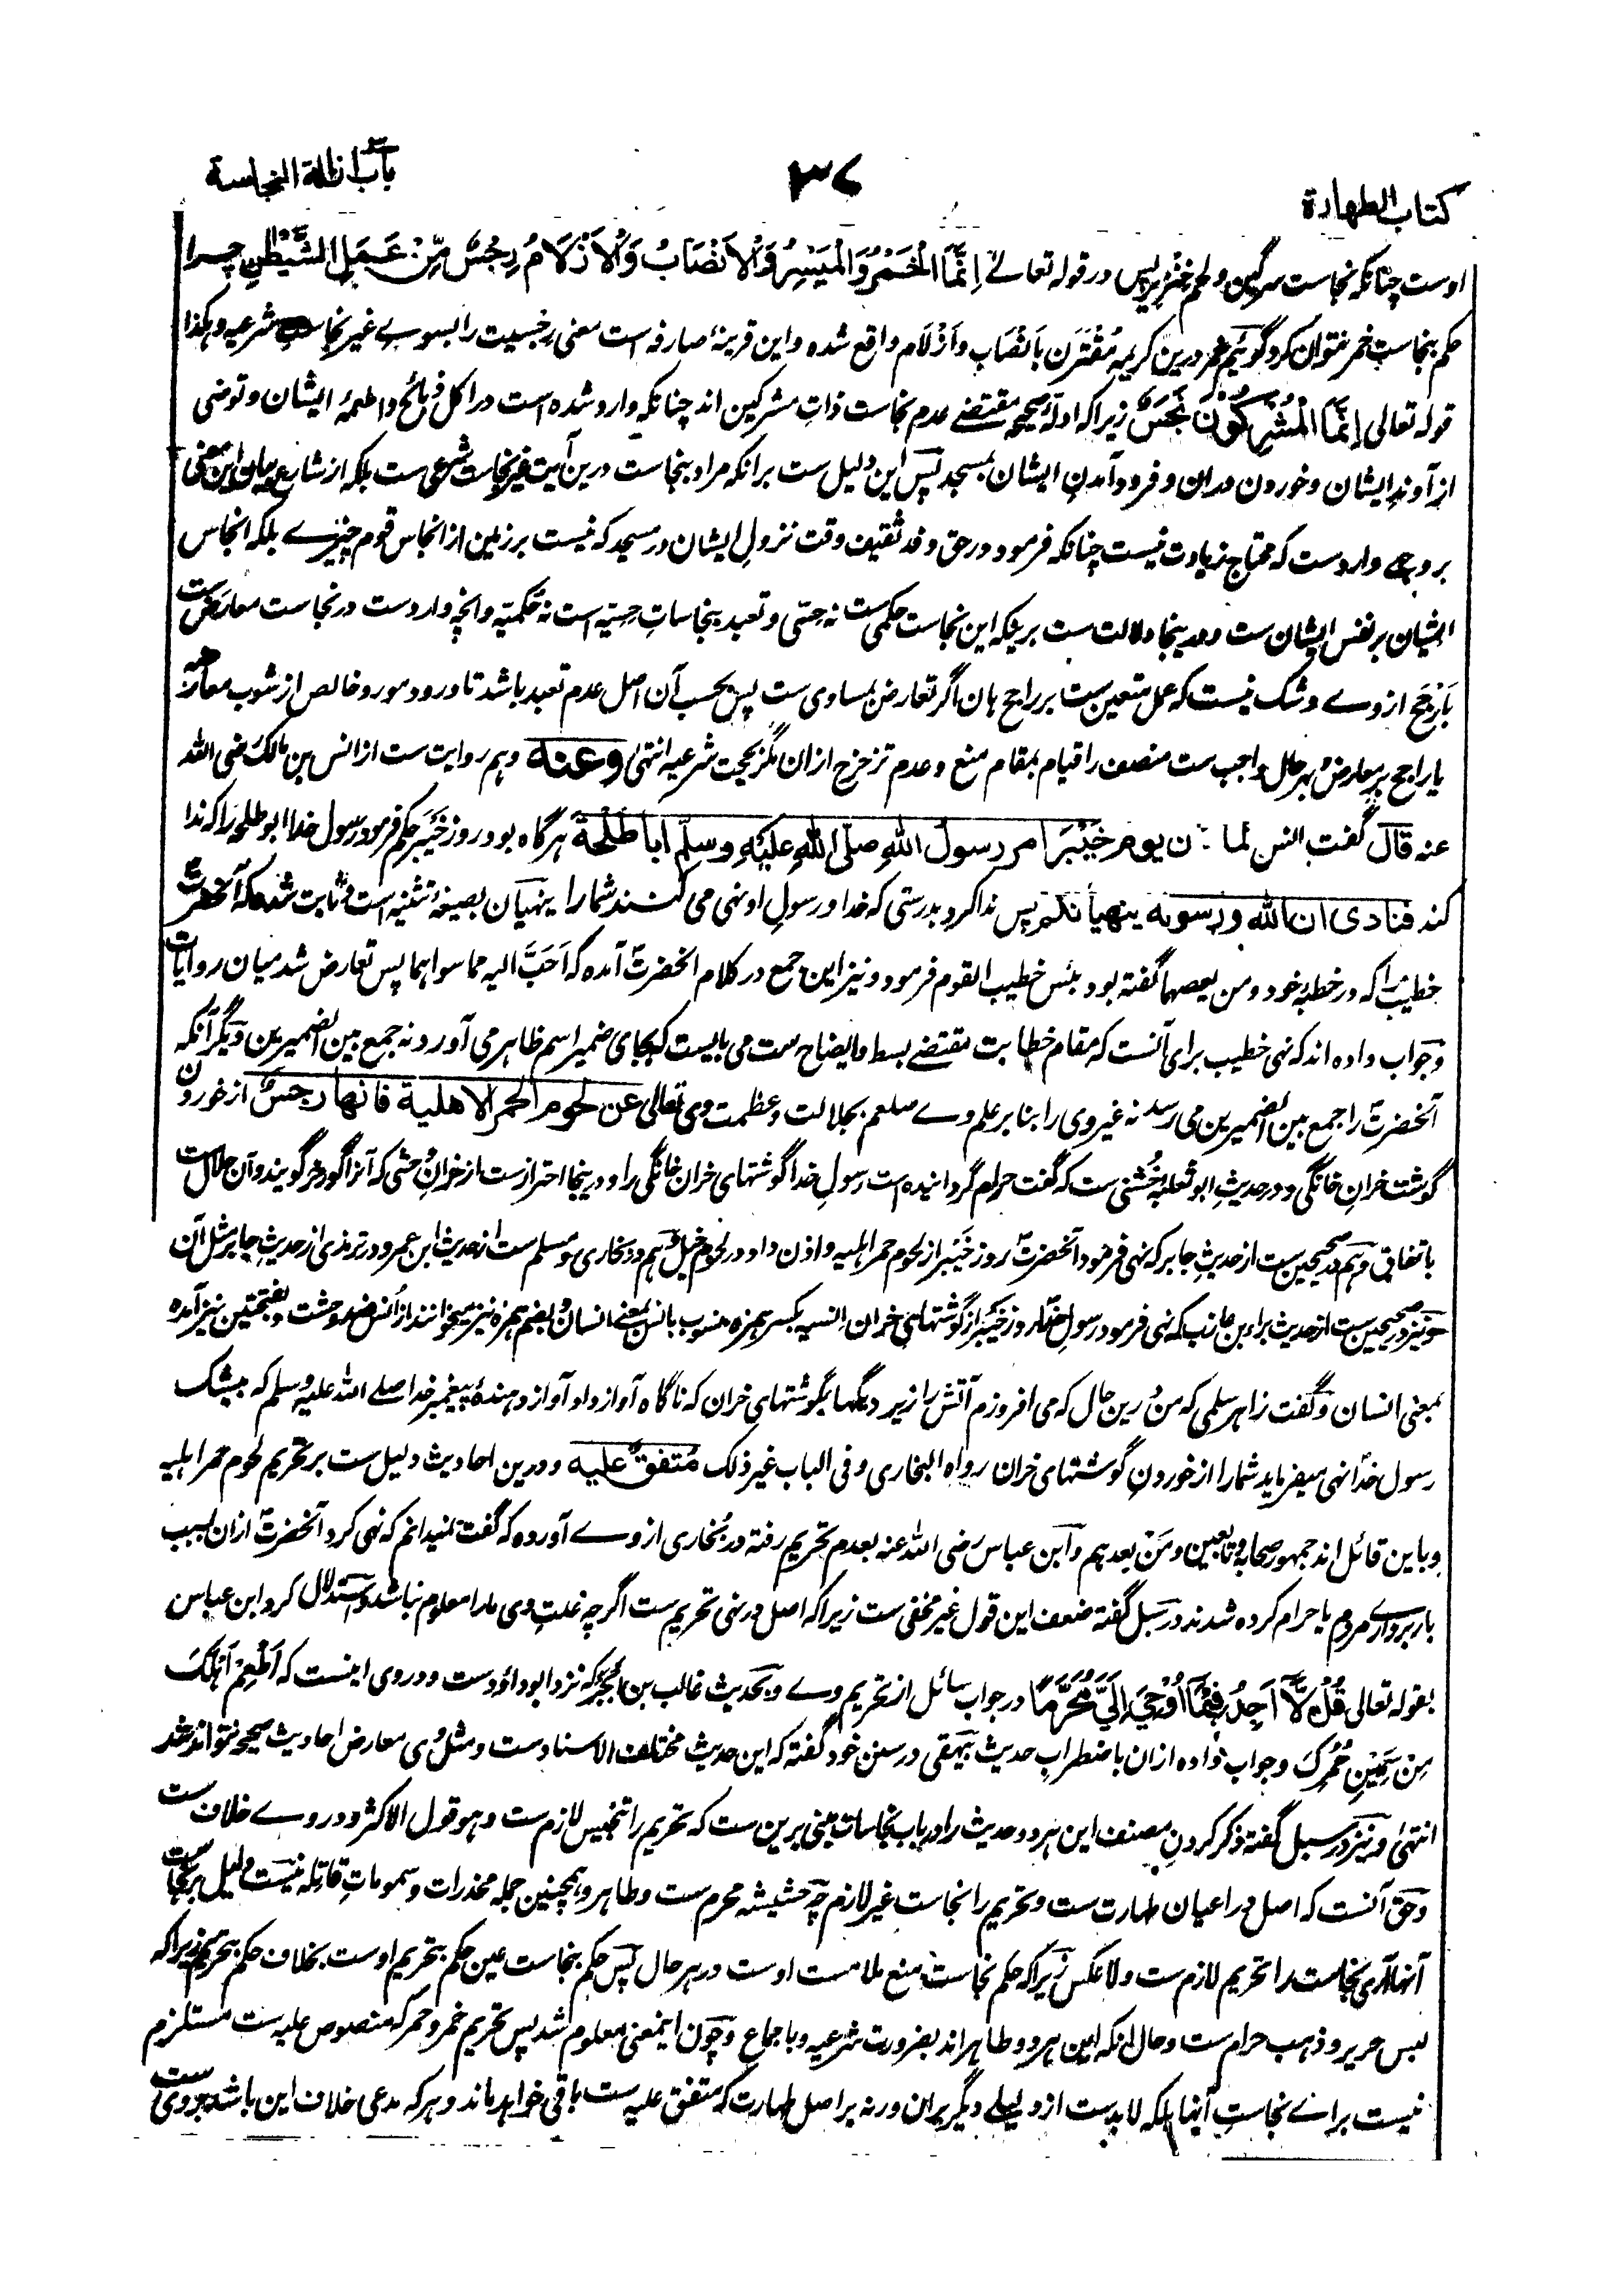 کتاب الطهارة
۳۷
باب ازالة النجاسة
اوست چنانکه نجاست سرگین و لحم خنزیر پس در قوله تعالے اِنَّمَا الْخَمْرُ وَالْمَيْسِرُ وَالْاَنْصَابُ وَالْاَزْلَامُ رِجْسٌ مِّنْ عَمَلِ الشَّيْطٰنِ چرا
حکم بنجاست خمر نتوان کرد گوئیم خمر درین کریمه مُقْتَرَن بَانْصَاب و اَزْلَام واقع شده و این قرینۂ صارفه است معنی رجسیت را بسوے غیر نجاست شرعیه و هکذا
قوله تعالی اِنَّمَا الْمُشْرِكُوْنَ نَجَسٌ زیرا که ادلۂ صحیحه مقتضے عدم نجاست ذاتِ مشرکین اند چنانکه وارد شده است در اکل ذبائح و اطعمۂ ایشان و توضی
از آوندِ ایشان و خوردن دران و فرود آمدنِ ایشان بمسجد پس این دلیل ست برانکه مراد بنجاست درین آیت غیر نجاست شرعی ست بلکه از شارع بیان این معنی
بر وجهے واردست که محتاج زیادت نیست چنانکه فرمود در حق وفد ثقیف وقت نزولِ ایشان در مسجد که نیست بر زمین از انجاس قوم چیزے بلکه انجاس
ایشان بر نفس ایشان ست و درینجا دلالت ست بر ینکه این نجاست حکمی ست نه حِسّی و تعبد بنجاساتِ حِسّیه است نه حُکمیّه و انچه واردست در نجاست معارض ست
بَارْجَح از وے و شک نیست که عمل متعین ست بر راجح هان اگر تعارض مساوی ست پس بحسب آن اصل عدم تعبد باشد تا ورود مورد خالص از شوب معارضه
یا راجح بر معارض و بهر حال واجب ست منصف را قیام بمقام منع و عدم تزحزح ازان مگر بحجت شرعیه انتهیٰ وعنه و هم روایت ست از انس بن مالک رضی الله
عنه قال گفت انس لما ن يوم خَيْبَرَ امر رسول اللهِ صلّى اللهِ عليهِ وسلم ابا طلحة هرگاه بود روز خَیْبَر حکم فرمود رسول خدا ابو طلحه را که ندا
کند فنادى ان الله ورسوله ينهيانكم پس ندا کرد بدرستی که خدا و رسولِ او نهی می کنند شما را ینهیان بصیغۂ تثنیه است و ثابت شده که آنحضرت
خطیب را که در خطبۂ خود و من یعصهما گفته بود بئس خطیب القوم فرمود و نیز این جمع در کلام آنحضرتؐ آمده که اَحَبَّ الیه مما سواهما پس تعارض شد میان روایات
و جواب داده اند که نهی خطیب برای آنست که مقام خطابت مقتضے بسط و ایضاح ست می بایست که بجای ضمیر اسم ظاهر می آورد نه جمع بین الضمیرین و دیگر آنکه
آنحضرتؐ را جمع بین الضمیرین می رسد نه غیر وی را بنا بر علم وے صلعم بجلالت و عظمت وی تعالی عن لحوم الحمر الاهلية فانها رجس از خوردن
گوشت خرانِ خانگی و در حدیثِ ابو ثعلبه خُشَنی ست که گفت حرام گردانیده است رسولِ خدا گوشتهای خران خانگی را و درینجا احتراز ست از خرانِ وحشی که آنرا گورخر گویند و آن حلال ست
باتفاق و هم در صحیحین ست از حدیثِ جابر که نهی فرمود آنحضرتؐ روز خَیْبَر از لحوم حمر اهلیه و اذن داد در لحوم خیل و هم در بخاری و مسلم ست از حدیث ابن عمر و در ترمذی از حدیثِ جابر مثل آن
و نیز در صحیحین ست از حدیث براء بن عازب که نهی فرمود رسولِ خدا روز خَیْبَر از گوشتهای خران انسیه بکسر همزه منسوب بانس بمعنے انسان و بضم همزه نیز میخوانند از اُنس ضد وحشت و بفتحتین نیز آمده
بمعنی انسان و گفت زاهر سلمی که من درین حال که می افروزم آتش را زیر دیگها بگوشتهای خران که ناگاه آواز داد آواز دهندۂ پیغمبر خدا صلے الله علیه وسلم که بیشک
رسول خدا نهی میفرماید شما را از خوردنِ گوشتهای خران رواه البخاری و فی الباب غیر ذلک متفق عليه و درین احادیث دلیل ست بر تحریم لحوم حمر اهلیه
و باین قائل اند جمهور صحابه و تابعین و مَن بعدهم و ابن عباس رضی الله عنه بعدم تحریم رفته در بُخاری از وے آورده که گفت نمیدانم که نهی کرد آنحضرتؐ ازان بسبب
باربرداری مردم یا حرام کرده شدند در سبل گفته ضعف این قول غیر مخفی ست زیرا که اصل در نهی تحریم ست اگرچه علتِ وی ما را معلوم نباشد و استدلال کرد ابن عباس
بقوله تعالی قُلْ لَّآ اَجِدُ فِيْمَآ اُوْحِيَ اِلَيَّ مُحَرَّمًا در جواب سائل از تحریم وے و بحدیث غالب بن ابجر که نزد ابو داؤدست و در وی اینست که اَطْعِمْ اَهْلَكَ
مِنْ سَمِيْنِ حُمُرِكَ و جواب داده ازان باضطراب حدیث بیهقی در سنن خود گفته که این حدیث مختلف الاسنادست و مثل وی معارض احادیث صحیحه نتواند شد
انتهیٰ و نیز در سبل گفته ذکر کردن مصنف این هر دو حدیث را در باب نجاسات مبنی برین ست که تحریم را تنجیس لازم ست و هو قول الاکثر و در وے خلاف ست
و حق آنست که اصل در اعیان طهارت ست و تحریم را نجاست غیر لازم چه حشیشه محرم ست و طاهر و همچنین جمله مخدرات و سموماتِ قاتله نیست دلیل بر نجاست
آنها آری نجاست را تحریم لازم ست و لا عکس زیرا که حکم نجاست منع ملامست اوست در هر حال پس حکم بنجاست عین حکم بتحریم اوست بخلاف حکم بتحریم زیرا که
لبس حریر و ذهب حرام ست و حال انکه این هر دو طاهر اند بضرورت شرعیه و باجماع و چون اینمعنی معلوم شد پس تحریم خمر و حمر که منصوص علیه ست مستلزم
نیست براے نجاستِ آنها بلکه لابدست از دلیلے دیگر بران ورنه بر اصل طهارت که متفق علیه ست باقی خواهد ماند و هر که مدعی خلاف این باشد بر وی ست